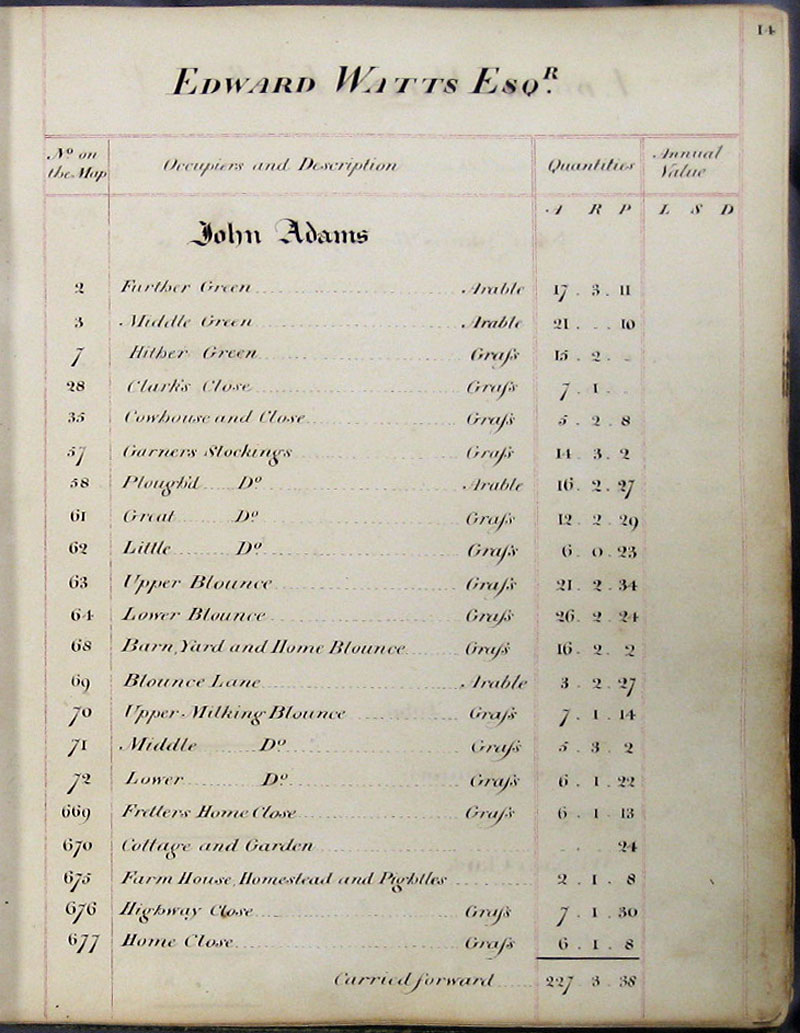 14
EDWARD WATTS ESQR.
No on the Map Occupiers and Description Quantities Annual Value
A R P L S D
John Adams
2 Further Green Arable 17 . 3 . 11
3 Middle Green Arable 21 . . . 10
7 Hither Green Graſs 15 . 2 . .
28 Clark's Close Graſs 7 . 1 .
35 Cowhouse and Close Graſs 5 . 2 . 8
57 Garners Stockings Graſs 14 3 . 2
58 Plough'd Do Arable 16 . 2 . 27
61 Great Do Graſs 12 . 2 . 29
62 Little Do Graſs 6 . 0 . 23
63 Upper Blounce Graſs 21 . 2 . 34
64 Lower Blounce Graſs 26 . 2 . 24
68 Barn, Yard and Home Blounce Graſs 16 . 2 . 2
69 Blounce Lane Arable 3 . 2 . 27
70 Upper Milking Blounce Graſs 7 . 1 . 14
71 Middle Do Graſs 5 . 3 . 2
72 Lower Do Graſs 6 . 1 . 22
669 Fretters Home Close Graſs 6 . 1 . 13
670 Cottage and Garden . . 24
675 Farm House, Homestead and Pightles 2 . 1 . 8
676 Highway Close Graſs 7 . 1 . 30
677 Home Close Graſs 6 . 1 . 8
Carried forward 227 3 38